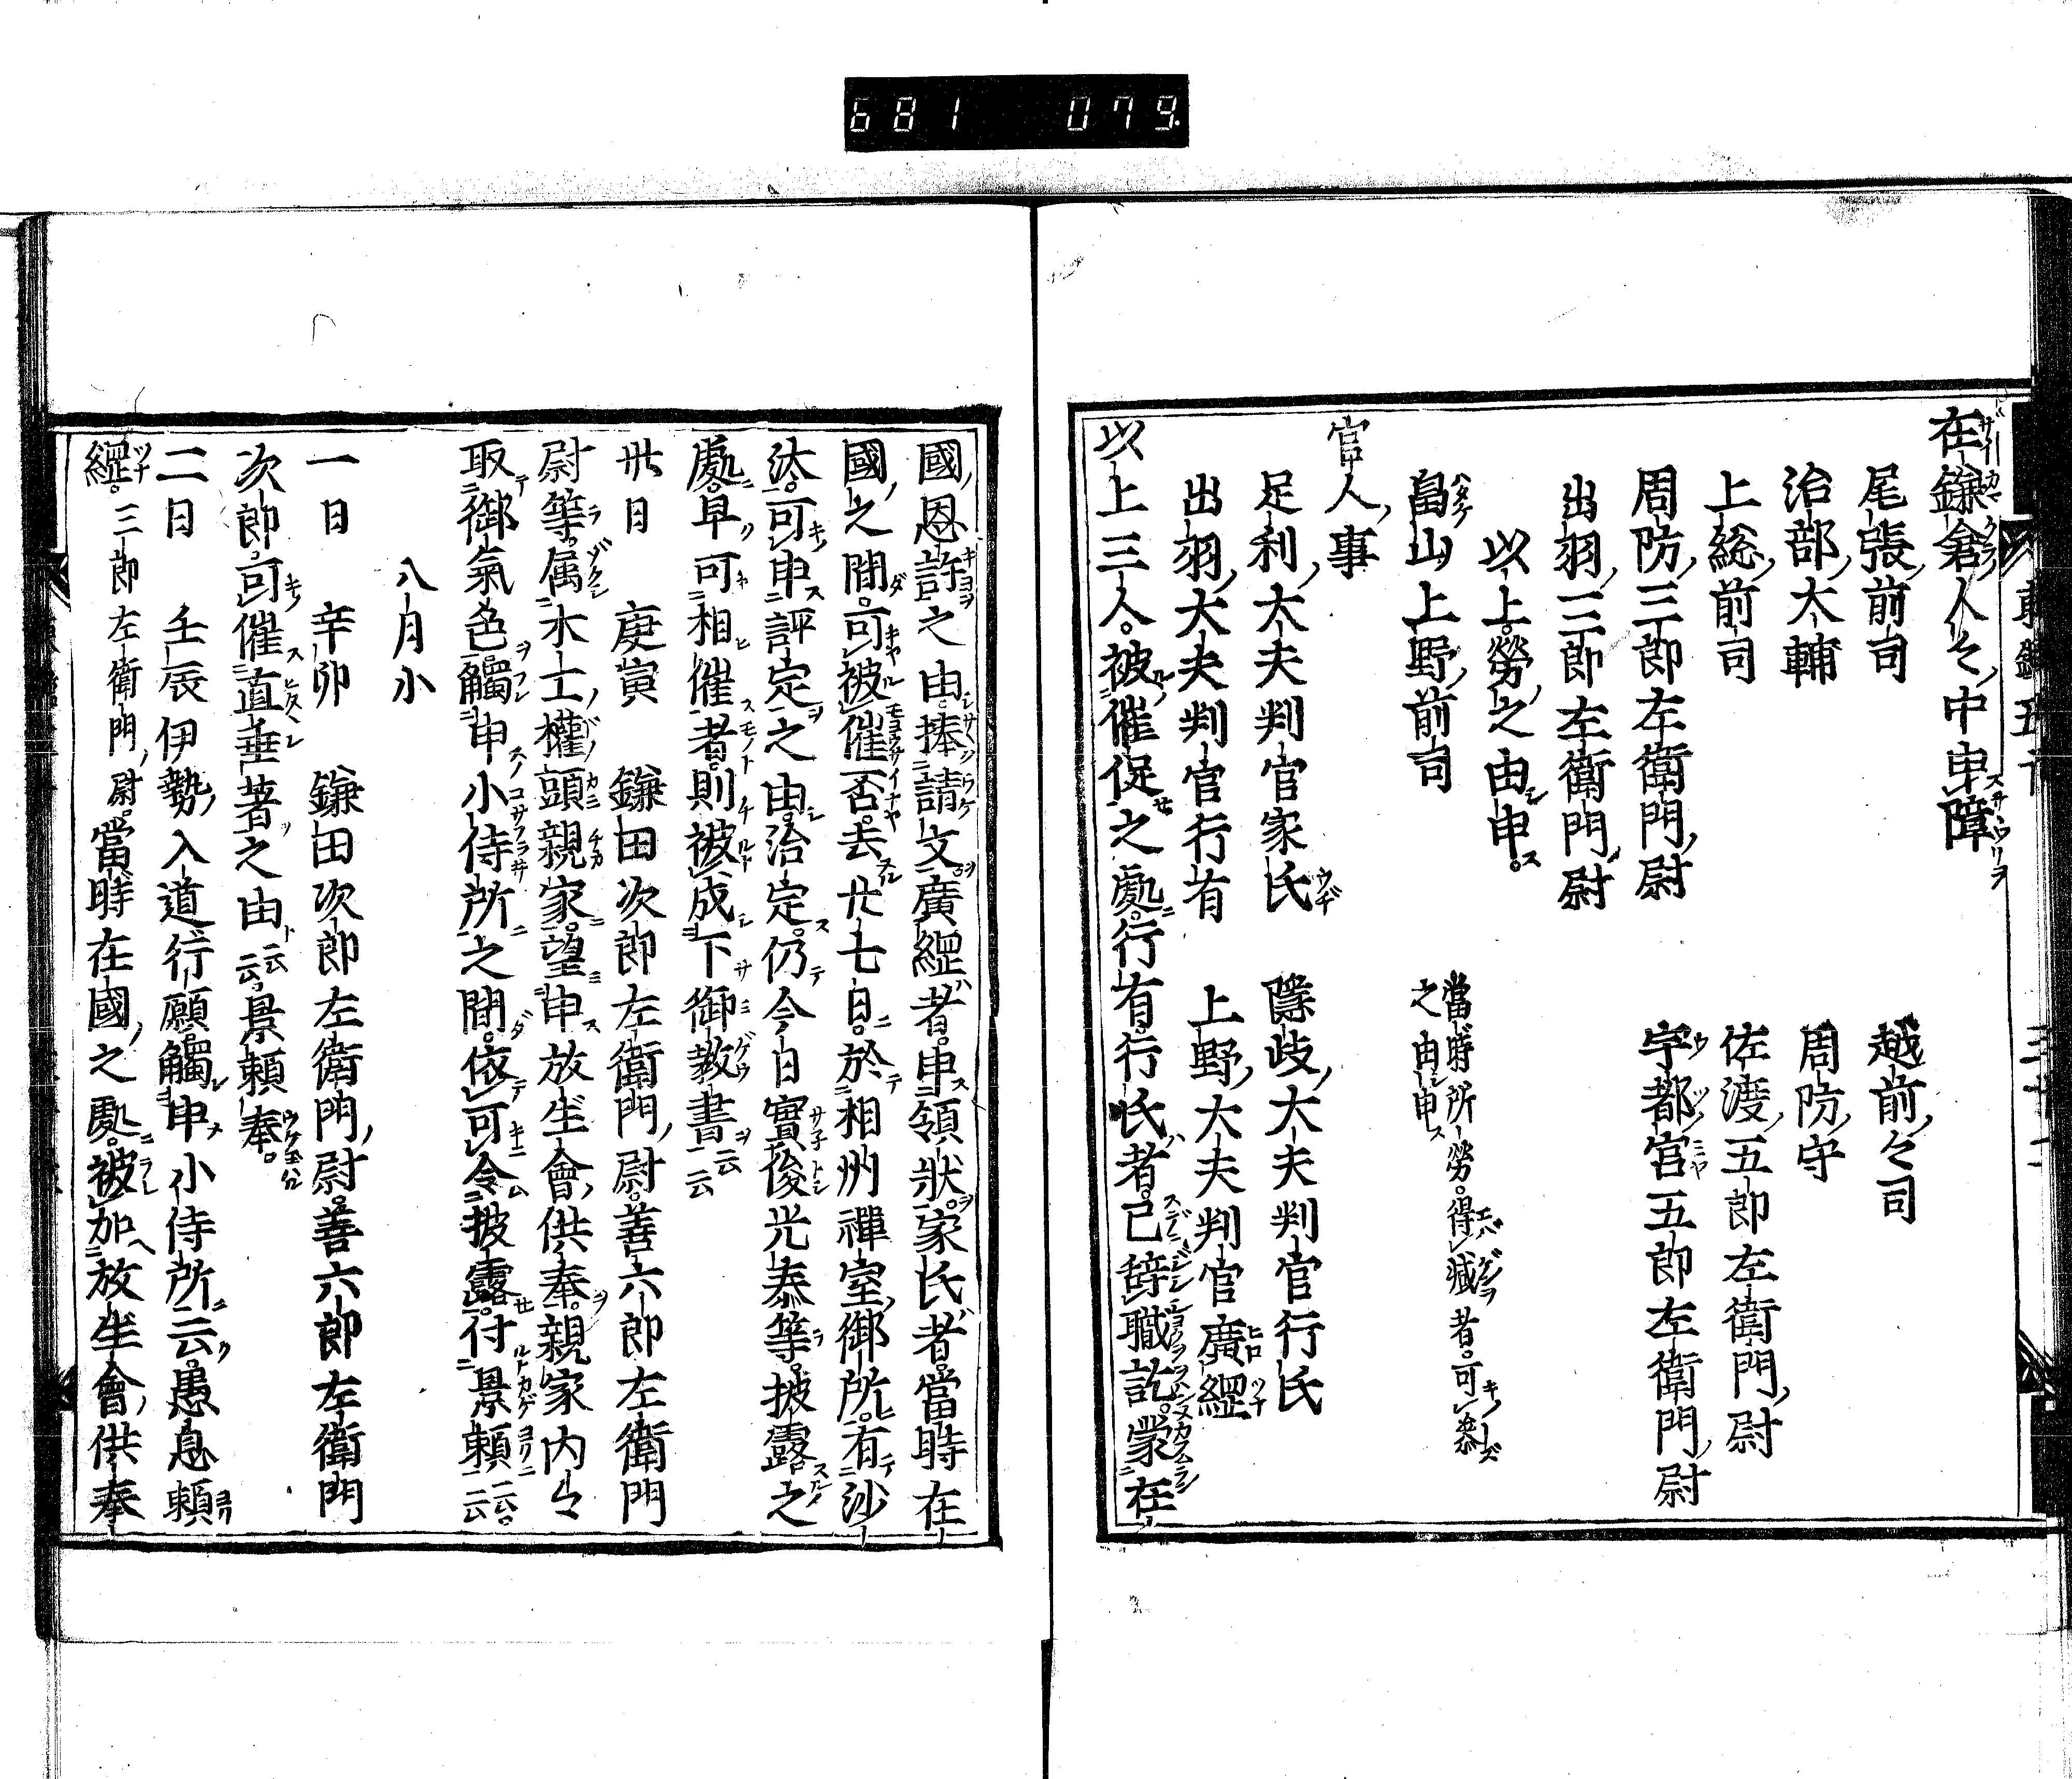 681 079
在鎌倉人々中申障
尾張前司 越前々司
治部大輔 周防守
上総前司 佐渡五郎左衛門尉
周防三郎左衛門尉 宇都宮五郎左衛門尉
出羽三郎左衛門尉
以上勞之由申。
畠山上野前司 當時所勞。得減者。可參之由申
官人事
足利大夫判官家氏 隱岐大夫判官行氏
出羽大夫判官行有 上野大夫判官廣綱
以上三人。被催促之處。行有。行氏者。已辞職訖。蒙在
國恩許之由。捧請文。廣綱者。申領狀。家氏者。當時在
國之間。可被催否。去廿七日。於相州禪室御所。有沙
汰。可申評定之由。治定。仍今日實俊光泰等。披露之
處。早可相催者。則被成下御教書云云
卅日 庚寅 鎌田次郎左衛門尉。善六郎左衛門
尉等。属木工權頭親家。望申放生會供奉。親家内々
取御氣色觸申小侍所之間。依可令披露。付景頼云云。
八月小
一日 辛卯 鎌田次郎左衛門尉。善六郎左衛門
次郎。可催直垂著之由云云。景頼奉。
二日 壬辰伊勢入道行願觸申小侍所云。愚息頼
綱。三郎左衛門尉。當時在國之處。被加放生會供奉